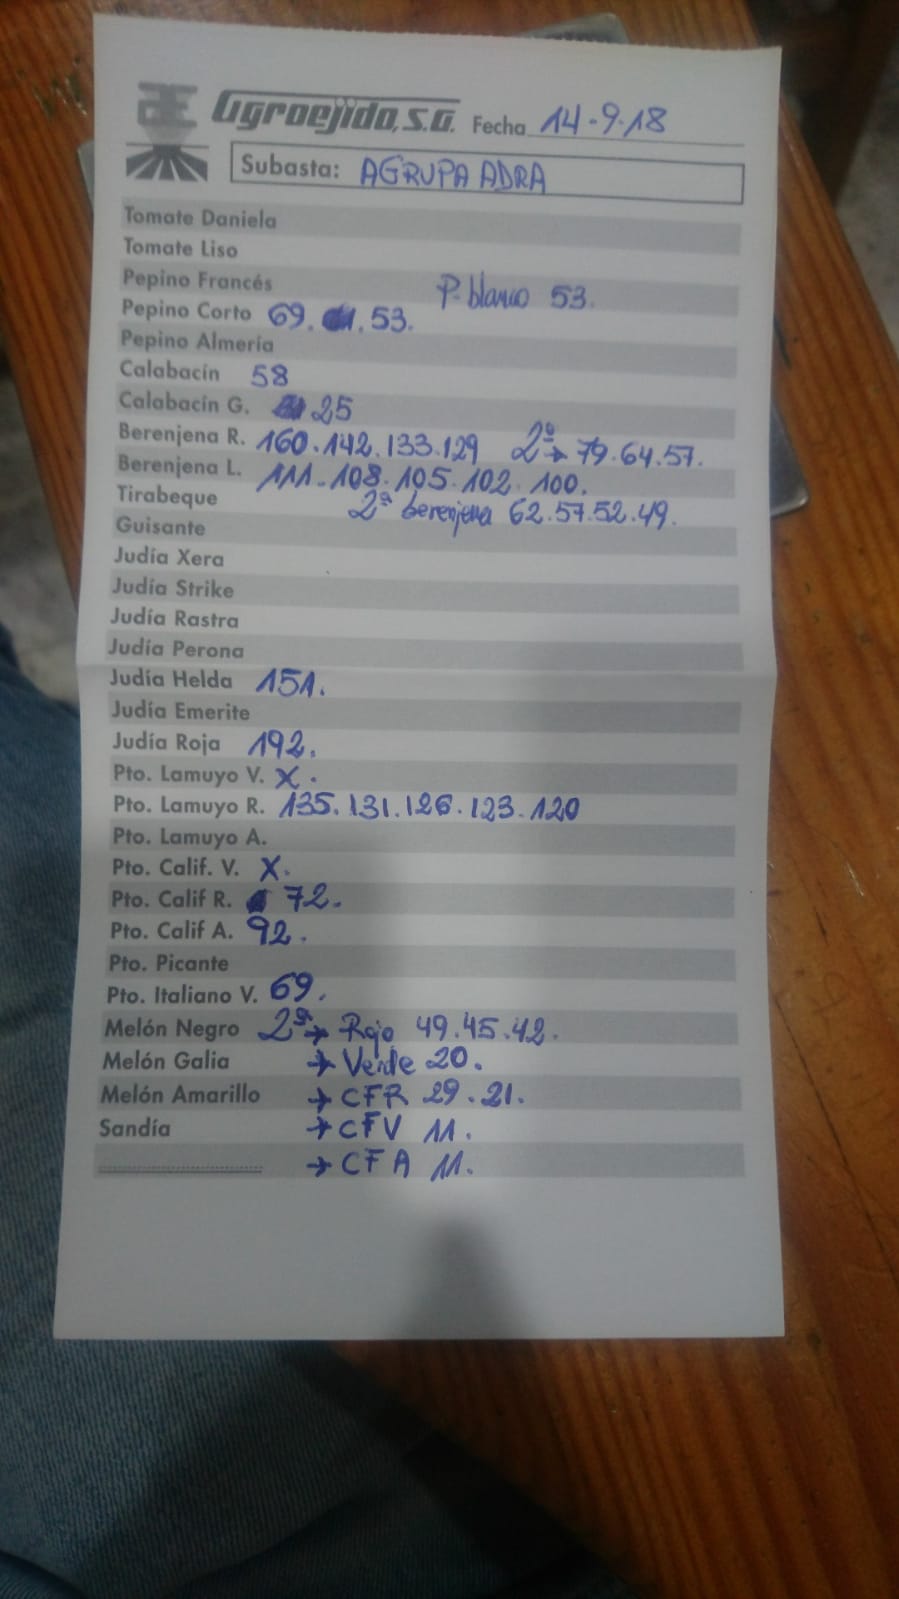 AE Agroejido, S.A. Fecha 14-9-18
Subasta: AGRUPA ADRA
Tomate Daniela
Tomate Liso
Pepino Francés P. blanco 53.
Pepino Corto 69. 53.
Pepino Almería
Calabacín 58
Calabacín G. 25
Berenjena R. 160.142.133.129 2º→79.64.57.
Berenjena L. 111-108.105.102.100.
Tirabeque 2ª berenjena 62.57.52.49.
Guisante
Judía Xera
Judía Strike
Judía Rastra
Judía Perona
Judía Helda 151.
Judía Emerite
Judía Roja 192.
Pto. Lamuyo V. X.
Pto. Lamuyo R. 135.131.126.123.120
Pto. Lamuyo A.
Pto. Calif. V. X.
Pto. Calif R. 72.
Pto. Calif A. 92.
Pto. Picante
Pto. Italiano V. 69.
Melón Negro 2ª→ Rojo 49.45.42.
Melón Galia → Verde 20.
Melón Amarillo → CFR 29.21.
Sandía → CFV 11.
→ CFA 11.